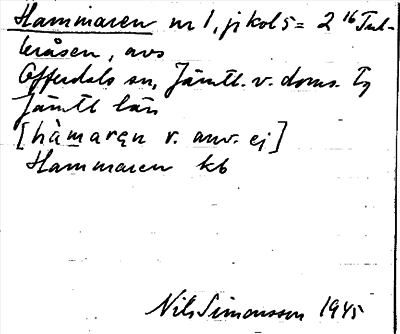 Hammaren nr 1, jfr kol 5 = 2 16 Tul-
leråsen, avs
Offerdals sn, Jämtl. v. doms. Tg
Jämtl län
[hàmaręn v. anv. ej]
Hammaren kb
Nils Simonsson 1945